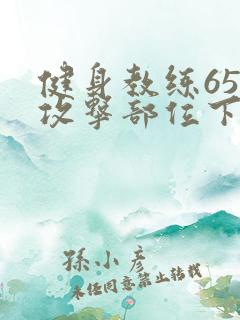 健身教练65
攻击部位下
孫小彦
未经同意禁止转载